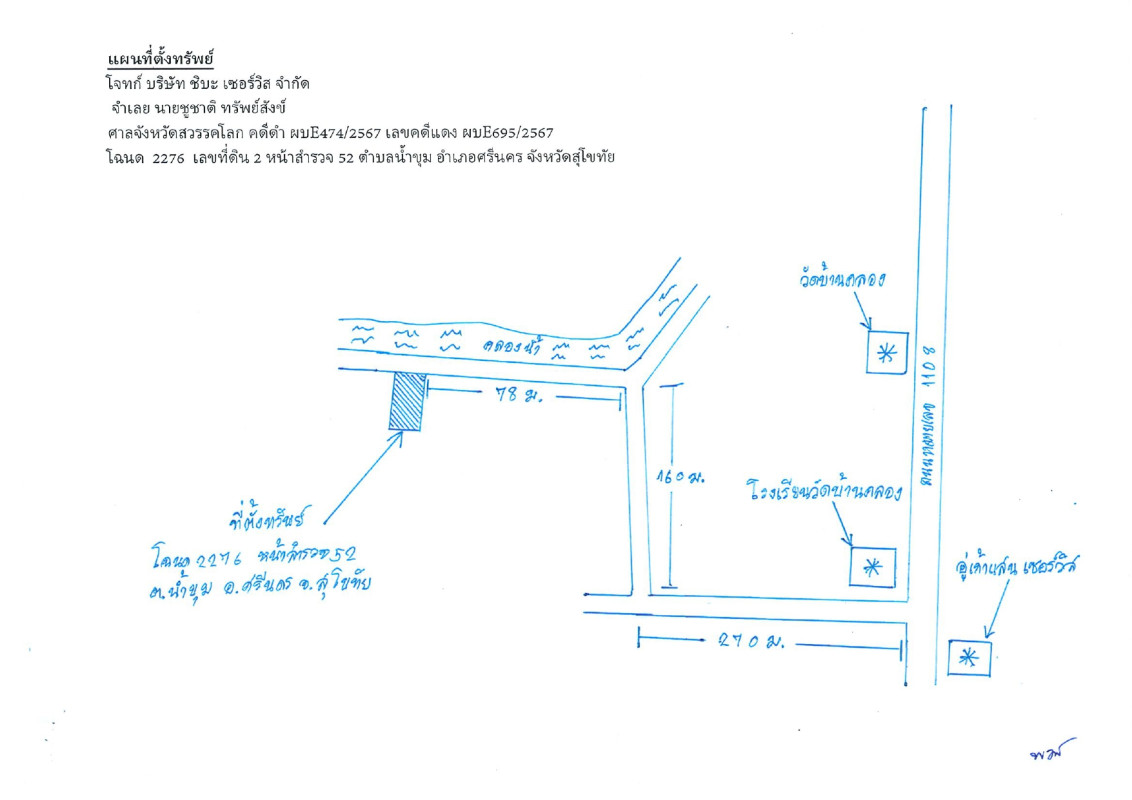 แผนที่ตั้งทรัพย์
โจทก์ บริษัท ชิบะ เซอร์วิส จำกัด
จำเลย นายชูชาติ ทรัพย์สังข์
ศาลจังหวัดสวรรคโลก คดีดำ ผบE474/2567 เลขคดีแดง ผบE695/2567
โฉนด 2276 เลขที่ดิน 2 หน้าสำรวจ 52 ตำบลน้ำขุม อำเภอศรีนคร จังหวัดสุโขทัย
วัดบ้านคลอง
คลองน้ำ
78 ม.
ถนนหมายเลข 1108
160 ม.
โรงเรียนวัดบ้านคลอง
ที่ตั้งทรัพย์
โฉนด 2276 หน้าสำรวจ 52
ต.น้ำขุม อ.ศรีนคร จ.สุโขทัย
อู่เก้าแสน เซอร์วิส
270 ม.